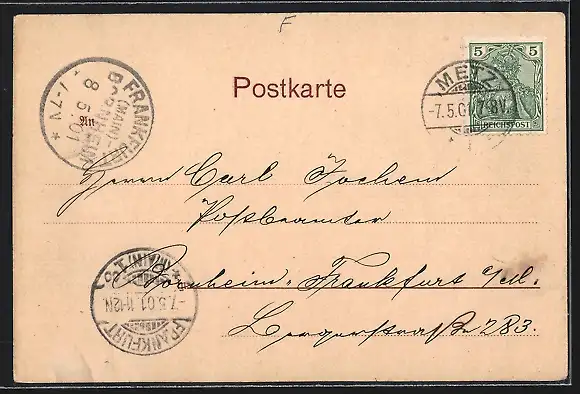 F
Postkarte
5 5
REICHSPOST
METZ
-7.5.01 7-8V.
FRANKFURT
(MAIN)-
BORNHEIM
8.5.01
7-N
*
An
Herrn Carl Jochem
Postbeamter
Bornheim-Frankfurt a/M.
Bergerstraße 283.
* (MAIN) 1
-7.5.01.11-12N.
FRANKFURT